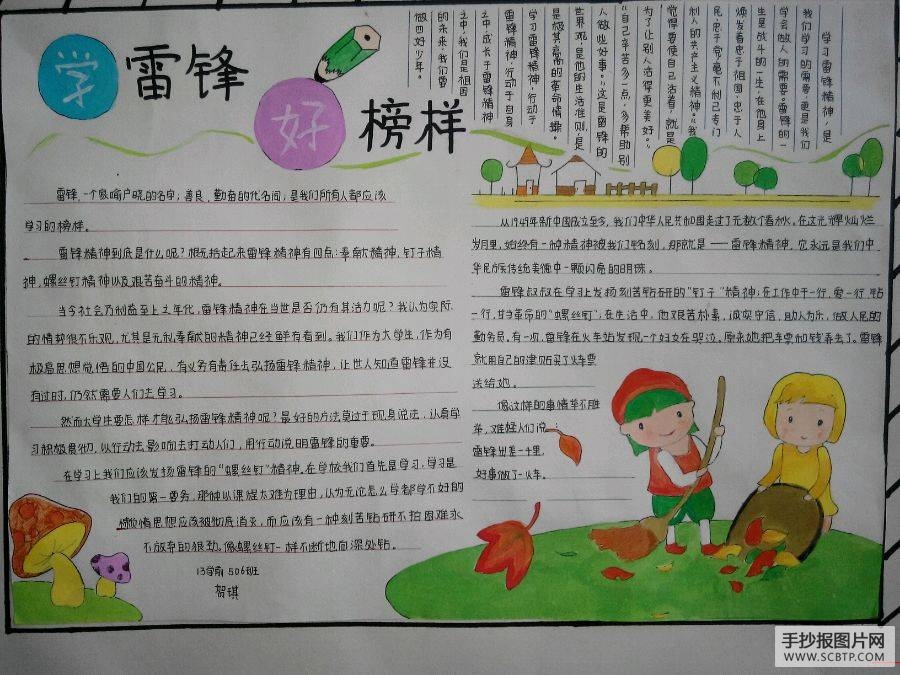 学雷锋
好榜样
学习雷锋精神,是
我们学习的需要,更是我们
学会做人的需要。雷锋的一
生是战斗的一生,在他身上
焕发着忠于祖国,忠于人
民忠于党,毫不利己专门
利人的共产主义精神。“我
觉得要使自己活着,就是
为了让别人活得更美好。”
“自己辛苦多一点,多帮助别
人做些好事。”这是雷锋的
世界观,是他的生活准则,是
是极其高高的革命情操。
学习雷锋精神,行动于
雷锋精神,行动于自身
之中,成长于雷锋精神
之中,我们是祖国
的未来,我们要
做四好少年。
雷锋,一个家喻户晓的名字;善良、勤奋的代名词;是我们所有人都应该
学习的榜样。
雷锋精神到底是什么呢?概括起来雷锋精神有四点:奉献精神,钉子精
神,螺丝钉精神以及艰苦奋斗的精神。
当今社会乃制造至上之年代,雷锋精神在当世是否仍有其活力呢?我认为实际
的情势很不乐观,尤其是无私奉献的精神已经鲜有看到。我们作为大学生,作为有
极高思想觉悟的中国公民,有义务有责任去弘扬雷锋精神,让世人知道雷锋并没
有过时,仍然需要人们去学习。
然而大学生要怎样才能弘扬雷锋精神呢?最好的方法莫过于现身说法,认真学
习积极贯彻,以行动去影响去打动人们,用行动说明雷锋的重要。
在学习上我们应该发扬雷锋的“螺丝钉”精神。在学校我们首先是学习,学习是
我们的第一要务,那种以课程太难为理由,认为无论怎么学都学不好的
懒惰思想应该被彻底消灭,而应该有一种刻苦钻研不怕困难永
不放弃的狠劲。像螺丝钉一样不断地向深处钻。
13学前506班
贺琪
从1949年新中国成立至今,我们中华人民共和国走过了无数个春秋。在这光辉灿烂
岁月里,始终有一种精神被我们铭刻,那就是——雷锋精神。它永远是我们中
华民族传统美德中一颗闪亮的明珠。
雷锋叔叔在学习上发扬刻苦钻研的“钉子”精神;在工作中干一行,爱一行,钻
一行,甘当革命的“螺丝钉”;在生活中,他艰苦朴素,诚实守信,助人为乐,做人民的
勤务员。有一次,雷锋在火车站发现一个妇女在哭泣,原来她把车票和钱弄丢了。雷锋
就用自己的津贴买了火车票
送给她。
像这样的事情举不胜
举,难怪人们说:
雷锋出差一千里,
好事做了一火车。
手抄报图片网
WWW.SCBTP.COM